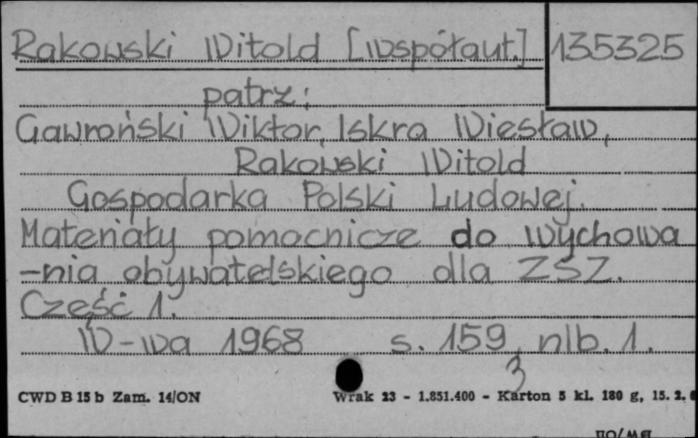 Rakowski Witold [współaut.] 135325
patrz:
Gawroński Wiktor, Iskra Wiesław,
Rakowski Witold
Gospodarka Polski Ludowej.
Materiały pomocnicze do wychowa
-nia obywatelskiego dla ZSZ.
Część 1.
W-wa 1968 s. 159, nlb. 1.
3
CWD B 15 b Zam. 14/ON Wrak 23 - 1.851.400 - Karton 5 kl. 180 g, 15. 2.